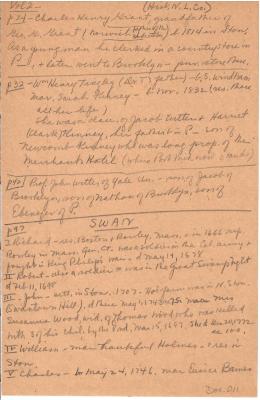 (Hist. N.L. Co.)
p24 - Charles Henry Grant, grandfather of
Geo. G. Grant (Norwich Bulletin) b 1814 in Ston.
As a young man he clerked in a country store in
P--l, + later went to Brooklyn -
p32 - Wm Henry Tingley (Dr T's father) - b. S. Windham
mar. Sarah Kinney - 2 Nov. 1832
She was a desc. of Jacob Witter + Harriet
Kinney, his father in P-- son of
Newcomb Kinney who was long prop. of the
Merchants Hotel
p40 Prof. John Witter, of Yale Un. - son of Jacob of
Brooklyn, son of Nathan of Brooklyn, son of
Ebenezer of P.
p47 SWAN
I Richard - res. Boston + Rowley, Mass., in 1666 rep.
Rowley in Mass. Gen. Ct. was a soldier in the Col. army +
fought in King Philip's war - d May 14, 1678
II Robert - also a soldier + was in the Great Swamp fight
d Feb. 11, 1698
III - John - sett. in Ston. 1707. His farm was in N. Ston.
(Swantown Hill), d there May 1, 1743 mar. Mrs
Susanna Wood, wid. of Thomas Wood who was killed
with 3 of his chil. by the Ind. Mar. 15, 1697. She d Dec 20, 1772
ae 100,
IV William - mar. Thankful Holmes - res in
Ston.
V Charles - b May 24, 1746, mar. Eunice Barnes
Doc. 011